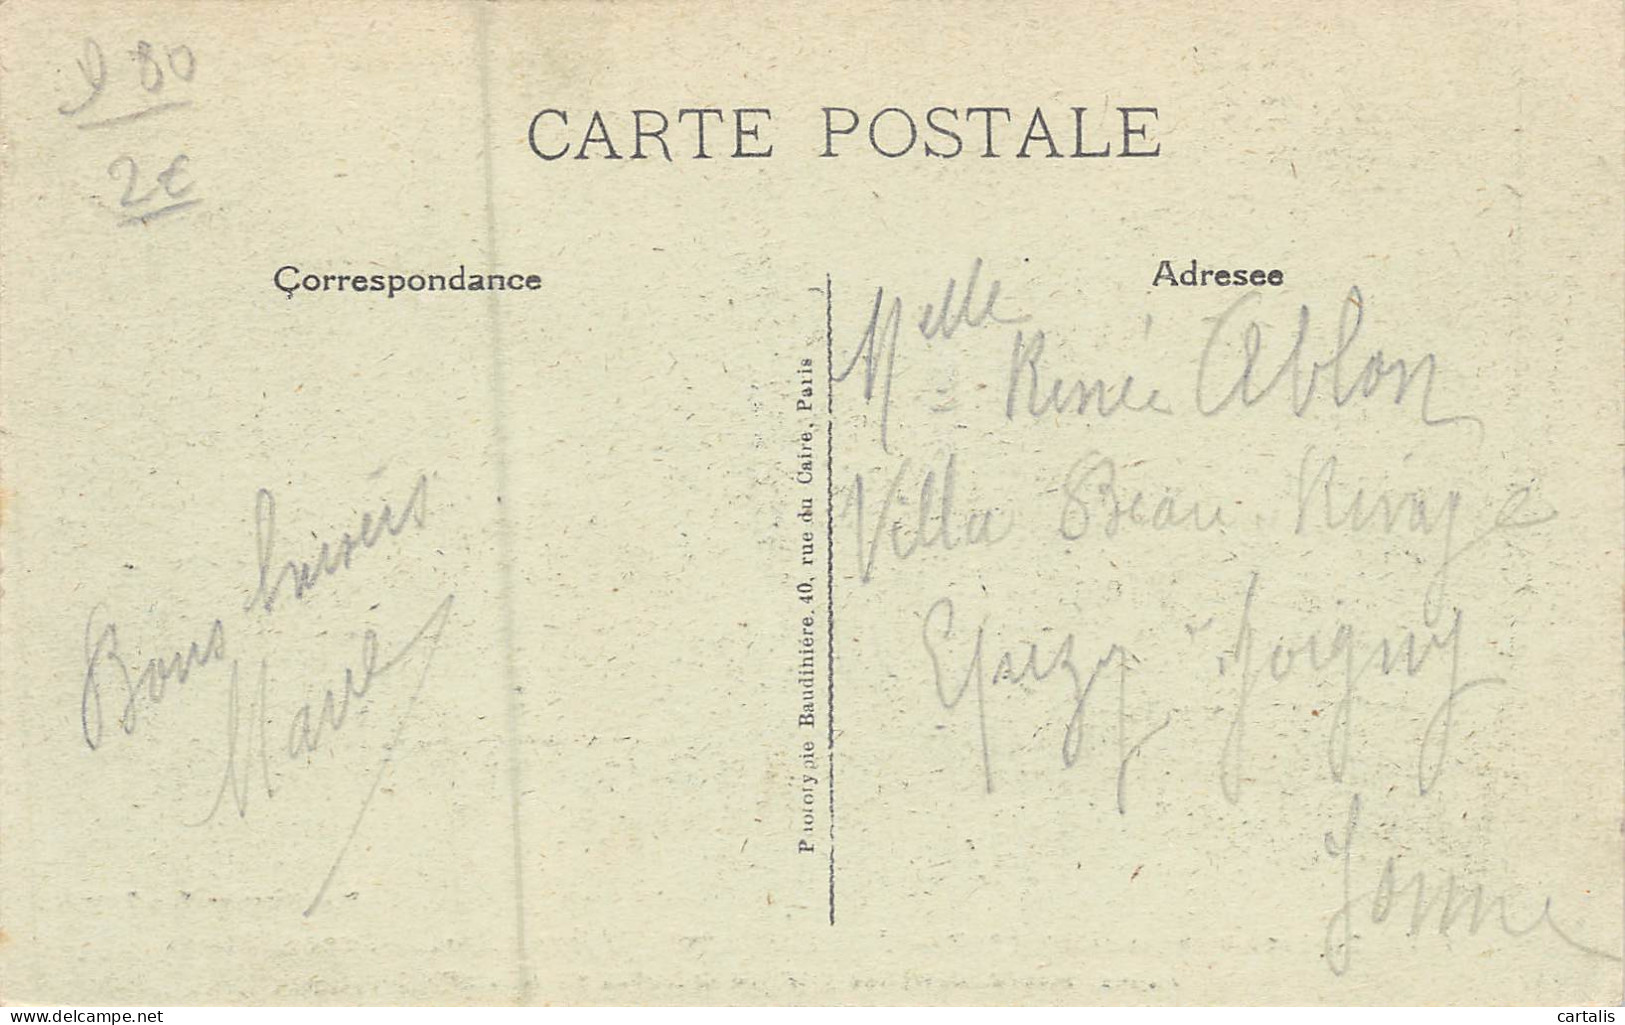 80
2€
CARTE POSTALE
Correspondance
Adresee
Bons baisers
Marie
Phototypie Baudinière. 40, rue du Caire, Paris
Melle Renée Ablon
Villa Beau Rivage
Epizy - Joigny
Yonne
delcampe.net
cartalis